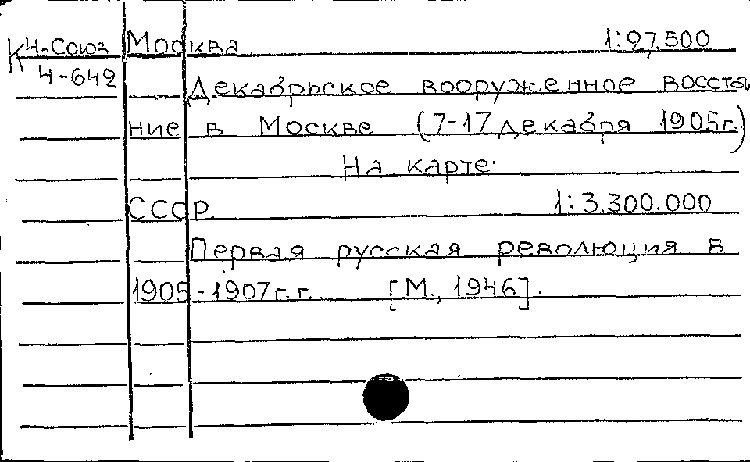 К 4-Союз Москва 1:97.500
4-649
Декабрьское вооруженное восста
ние в Москве (7-17 декабря 1905г.)
На карте:
СССР. 1:3.300.000
Первая русская революция в
1905-1907г.г. [М., 1946].